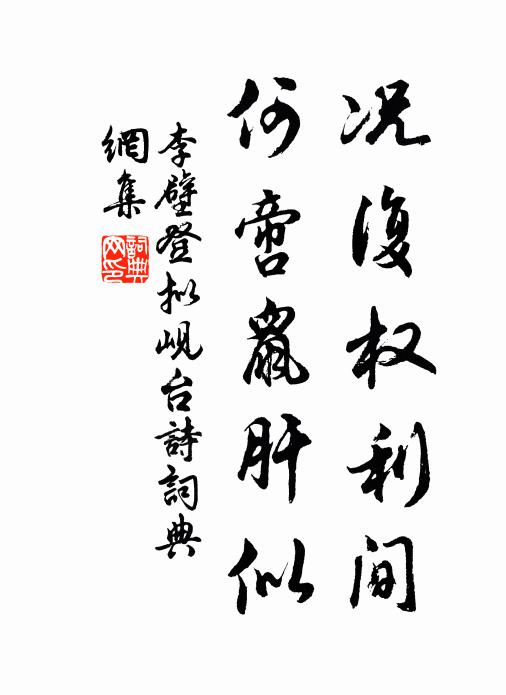 况復权利间
何啻鼠肝似
李壁登拟岘台詩詞典
網集
詞典网印